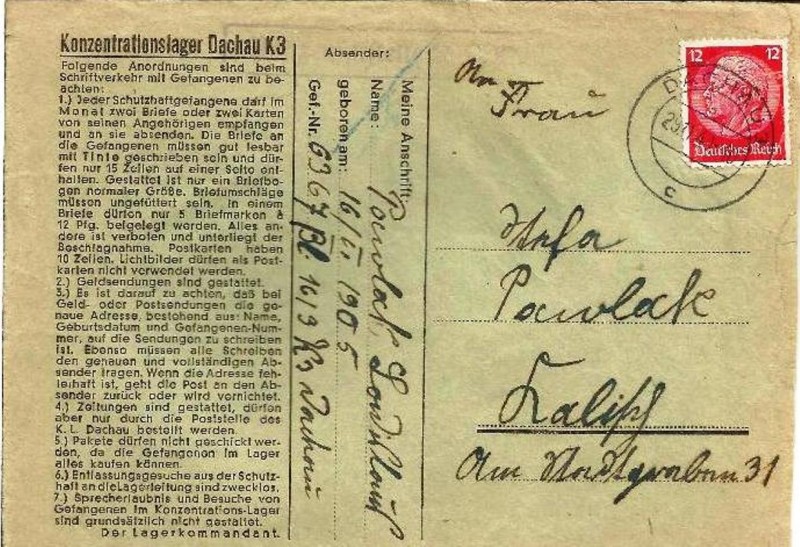 Konzentrationslager Dachau K3
Folgende Anordnungen sind beim
Schriftverkehr mit Gefangenen zu be-
achten:
1.) Jeder Schutzhaftgefangene darf im
Monat zwei Briefe oder zwei Karten
von seinen Angehörigen empfangen
und an sie absenden. Die Briefe an
die Gefangenen müssen gut lesbar
mit Tinte geschrieben sein und dür-
fen nur 15 Zeilen auf einer Seite ent-
halten. Gestattet ist nur ein Briefbo-
gen normaler Größe. Briefumschläge
müssen ungefüttert sein. In einem
Briefe dürfen nur 5 Briefmarken à
12 Pfg. beigelegt werden. Alles an-
dere ist verboten und unterliegt der
Beschlagnahme. Postkarten haben
10 Zeilen. Lichtbilder dürfen als Post-
karten nicht verwendet werden.
2.) Geldsendungen sind gestattet.
3.) Es ist darauf zu achten, daß bei
Geld- oder Postsendungen die ge-
naue Adresse, bestehend aus: Name,
Geburtsdatum und Gefangenen-Num-
mer, auf die Sendungen zu schreiben
ist. Ebenso müssen alle Schreiben
den genauen und vollständigen Ab-
sender tragen. Wenn die Adresse feh-
lerhaft ist, geht die Post an den Ab-
sender zurück oder wird vernichtet.
4.) Zeitungen sind gestattet, dürfen
aber nur durch die Poststelle des
K. L. Dachau bestellt werden.
5.) Pakete dürfen nicht geschickt wer-
den, da die Gefangenen im Lager
alles kaufen können.
6.) Entlassungsgesuche aus der Schutz-
haft an die Lagerleitung sind zwecklos.
7.) Sprecherlaubnis und Besuche von
Gefangenen im Konzentrations-Lager
sind grundsätzlich nicht gestattet.
Der Lagerkommandant.
Absender:
Meine Anschrift:
Name: Pawlack,
geboren am: 16/VI. 1905
Gef.-Nr. 6367 Bl. 16/3 K3 Dachau
An Frau
Stefa
Pawlack
Kalisch
Am Stadtgraben 31
12 12
Deutsches Reich
DACHAU
C